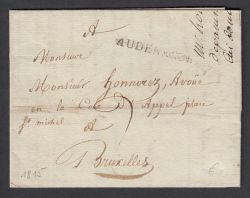 A
Monsieur
AUDENARDE
Monsieur honnorez, Avoué
en la Cour D'Appel place
St michel
A
Bruxelles
1815
€